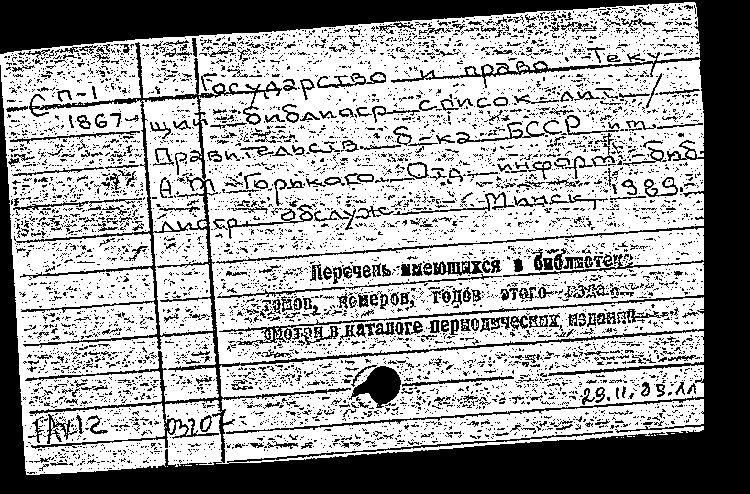 СП-1
1867
Государство и право. Теку-
щий библиогр список лит. /
Правительств. б-ка БССР им.
А.М. Горького. Отд. информ.-биб
лиогр. обслуж. - Минск, 1989.-
Перечень имеющихся в библиотеке
томов, номеров, годов этого изда-
смотри в каталоге периодических изданий
03207